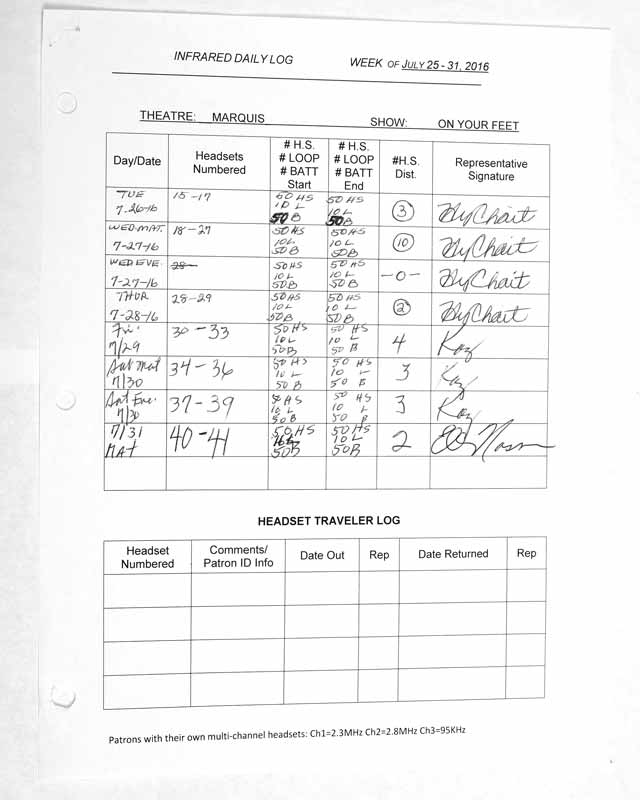 INFRARED DAILY LOG WEEK OF JULY 25 - 31, 2016
THEATRE: MARQUIS SHOW: ON YOUR FEET
Day/Date Headsets Numbered # H.S. # LOOP # BATT Start # H.S. # LOOP # BATT End #H.S. Dist. Representative Signature
TUE 7-26-16 15-17 50 HS 10 L 50 B 50 HS 10 L 50 B 3
WED. MAT. 7-27-16 18-27 50 HS 10 L 50 B 50 HS 10 L 50 B 10
WED EVE. 7-27-16 28- 50 HS 10 L 50 B 50 HS 10 L 50 B -0-
THUR 7-28-16 28-29 50 HS 10 L 50 B 50 HS 10 L 50 B 2
Fri. 7/29 30-33 50 HS 10 L 50 B 50 HS 10 L 50 B 4 Kaz
Sat Mat 7/30 34-36 50 HS 10 L 50 B 50 HS 10 L 50 B 3 Kaz
Sat Eve. 7/30 37-39 50 HS 10 L 50 B 50 HS 10 L 50 B 3 Kaz
7/31 MAT 40-41 50 HS 50B 50 HS 10 L 50 B 2
HEADSET TRAVELER LOG
Headset Numbered Comments/ Patron ID Info Date Out Rep Date Returned Rep
Patrons with their own multi-channel headsets: Ch1=2.3MHz Ch2=2.8MHz Ch3=95KHz